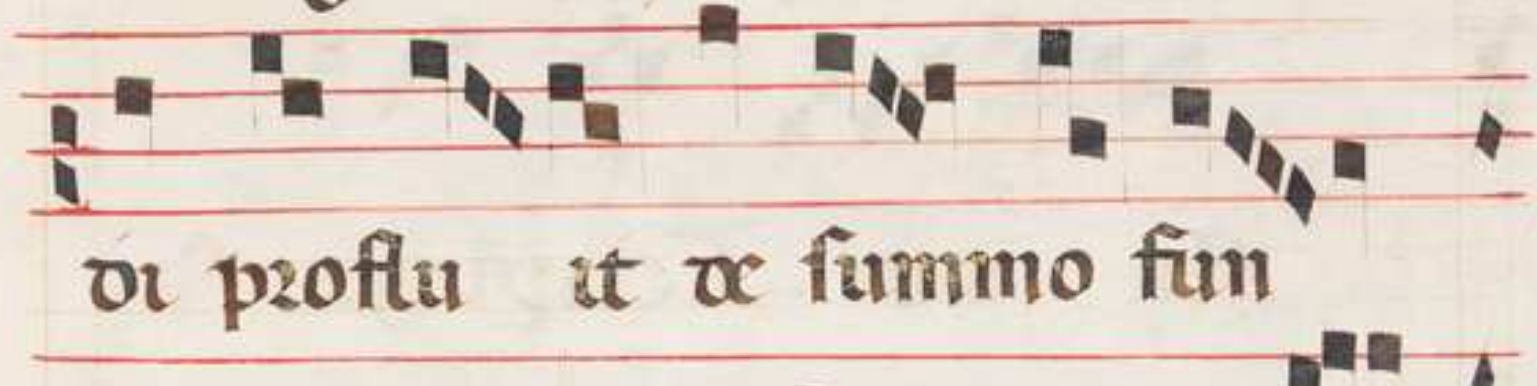 di proflu it de summo fun